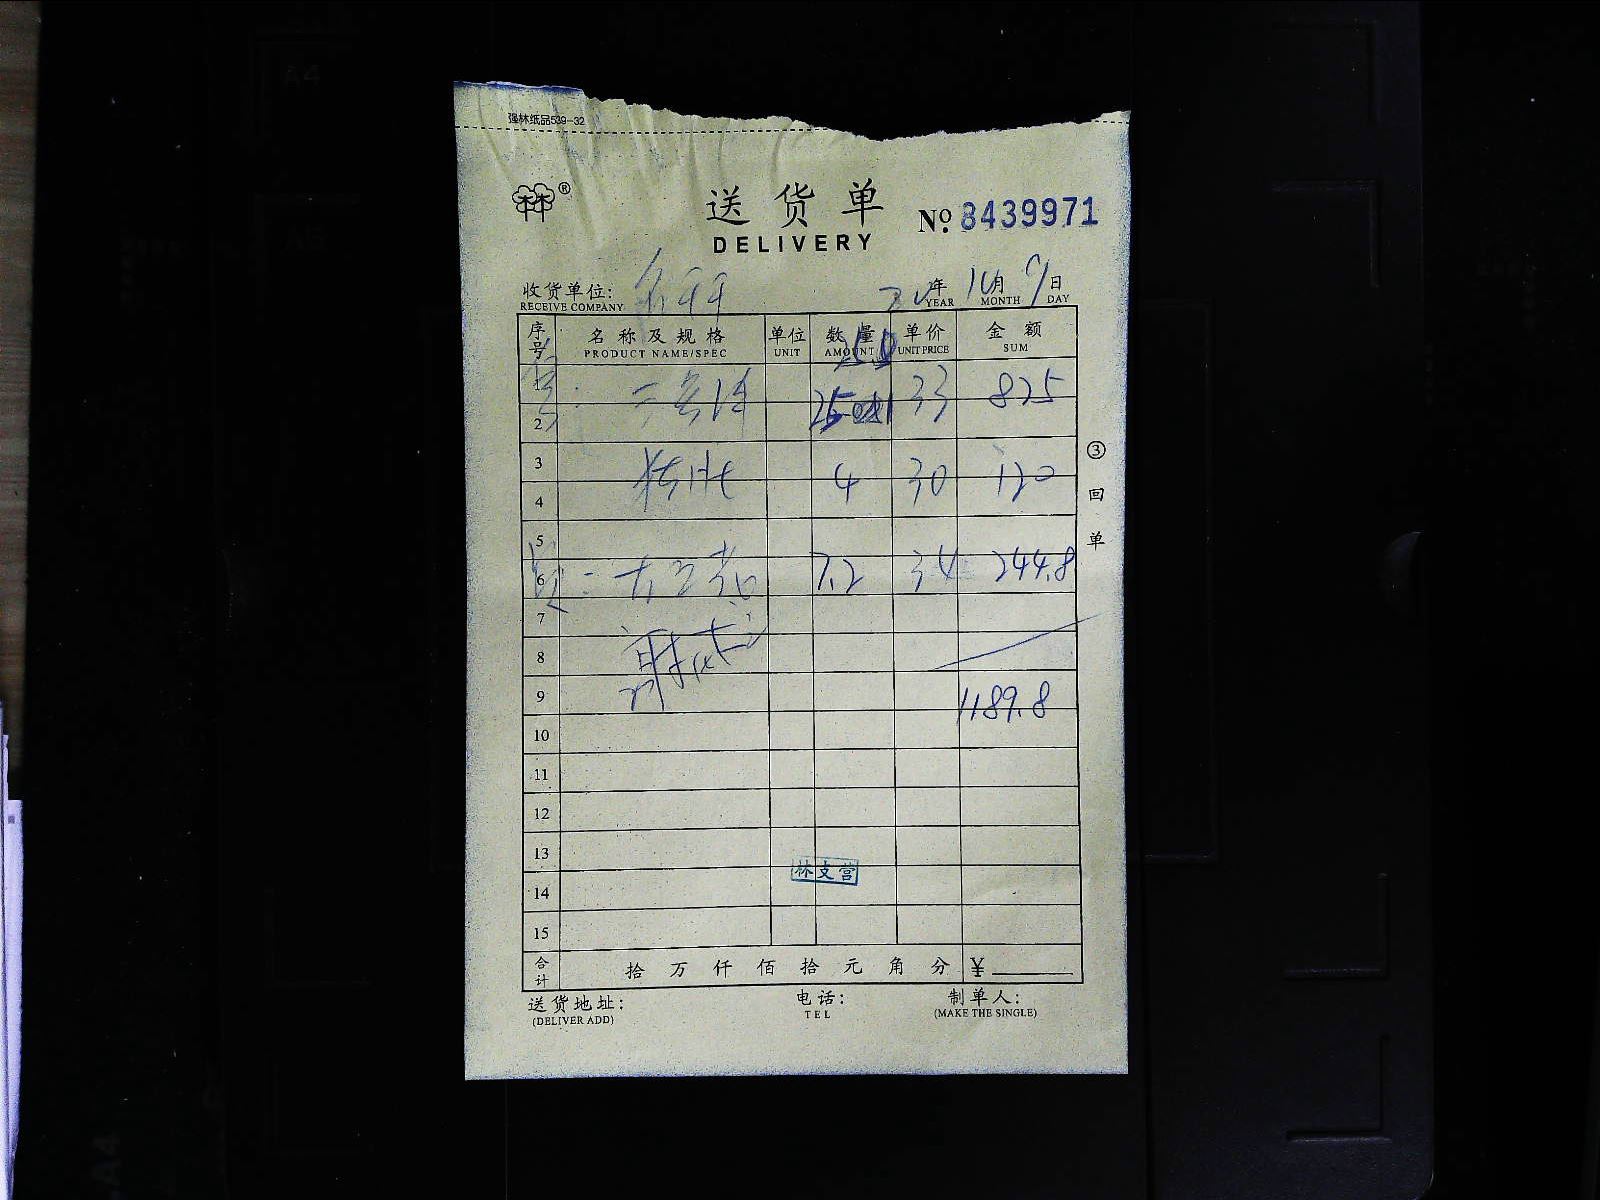 强林纸品539-32
林林®
送货单 № 8439971
DELIVERY
收货单位: 年 10月 7日
RECEIVE COMPANY YEAR MONTH DAY
序号 名称及规格 单位 数量 单价 金额
PRODUCT NAME/SPEC UNIT AMOUNT UNIT PRICE SUM
1 33 825
2
3 猪肚 4 30 120
4
5
6 7.2 34 244.8
7
8
9 1189.8
10
11
12
13
14 林支营
15
合计 拾 万 仟 佰 拾 元 角 分 ¥
送货地址: 电话: 制单人:
(DELIVER ADD) TEL (MAKE THE SINGLE)
③回单
A4
A5
A4